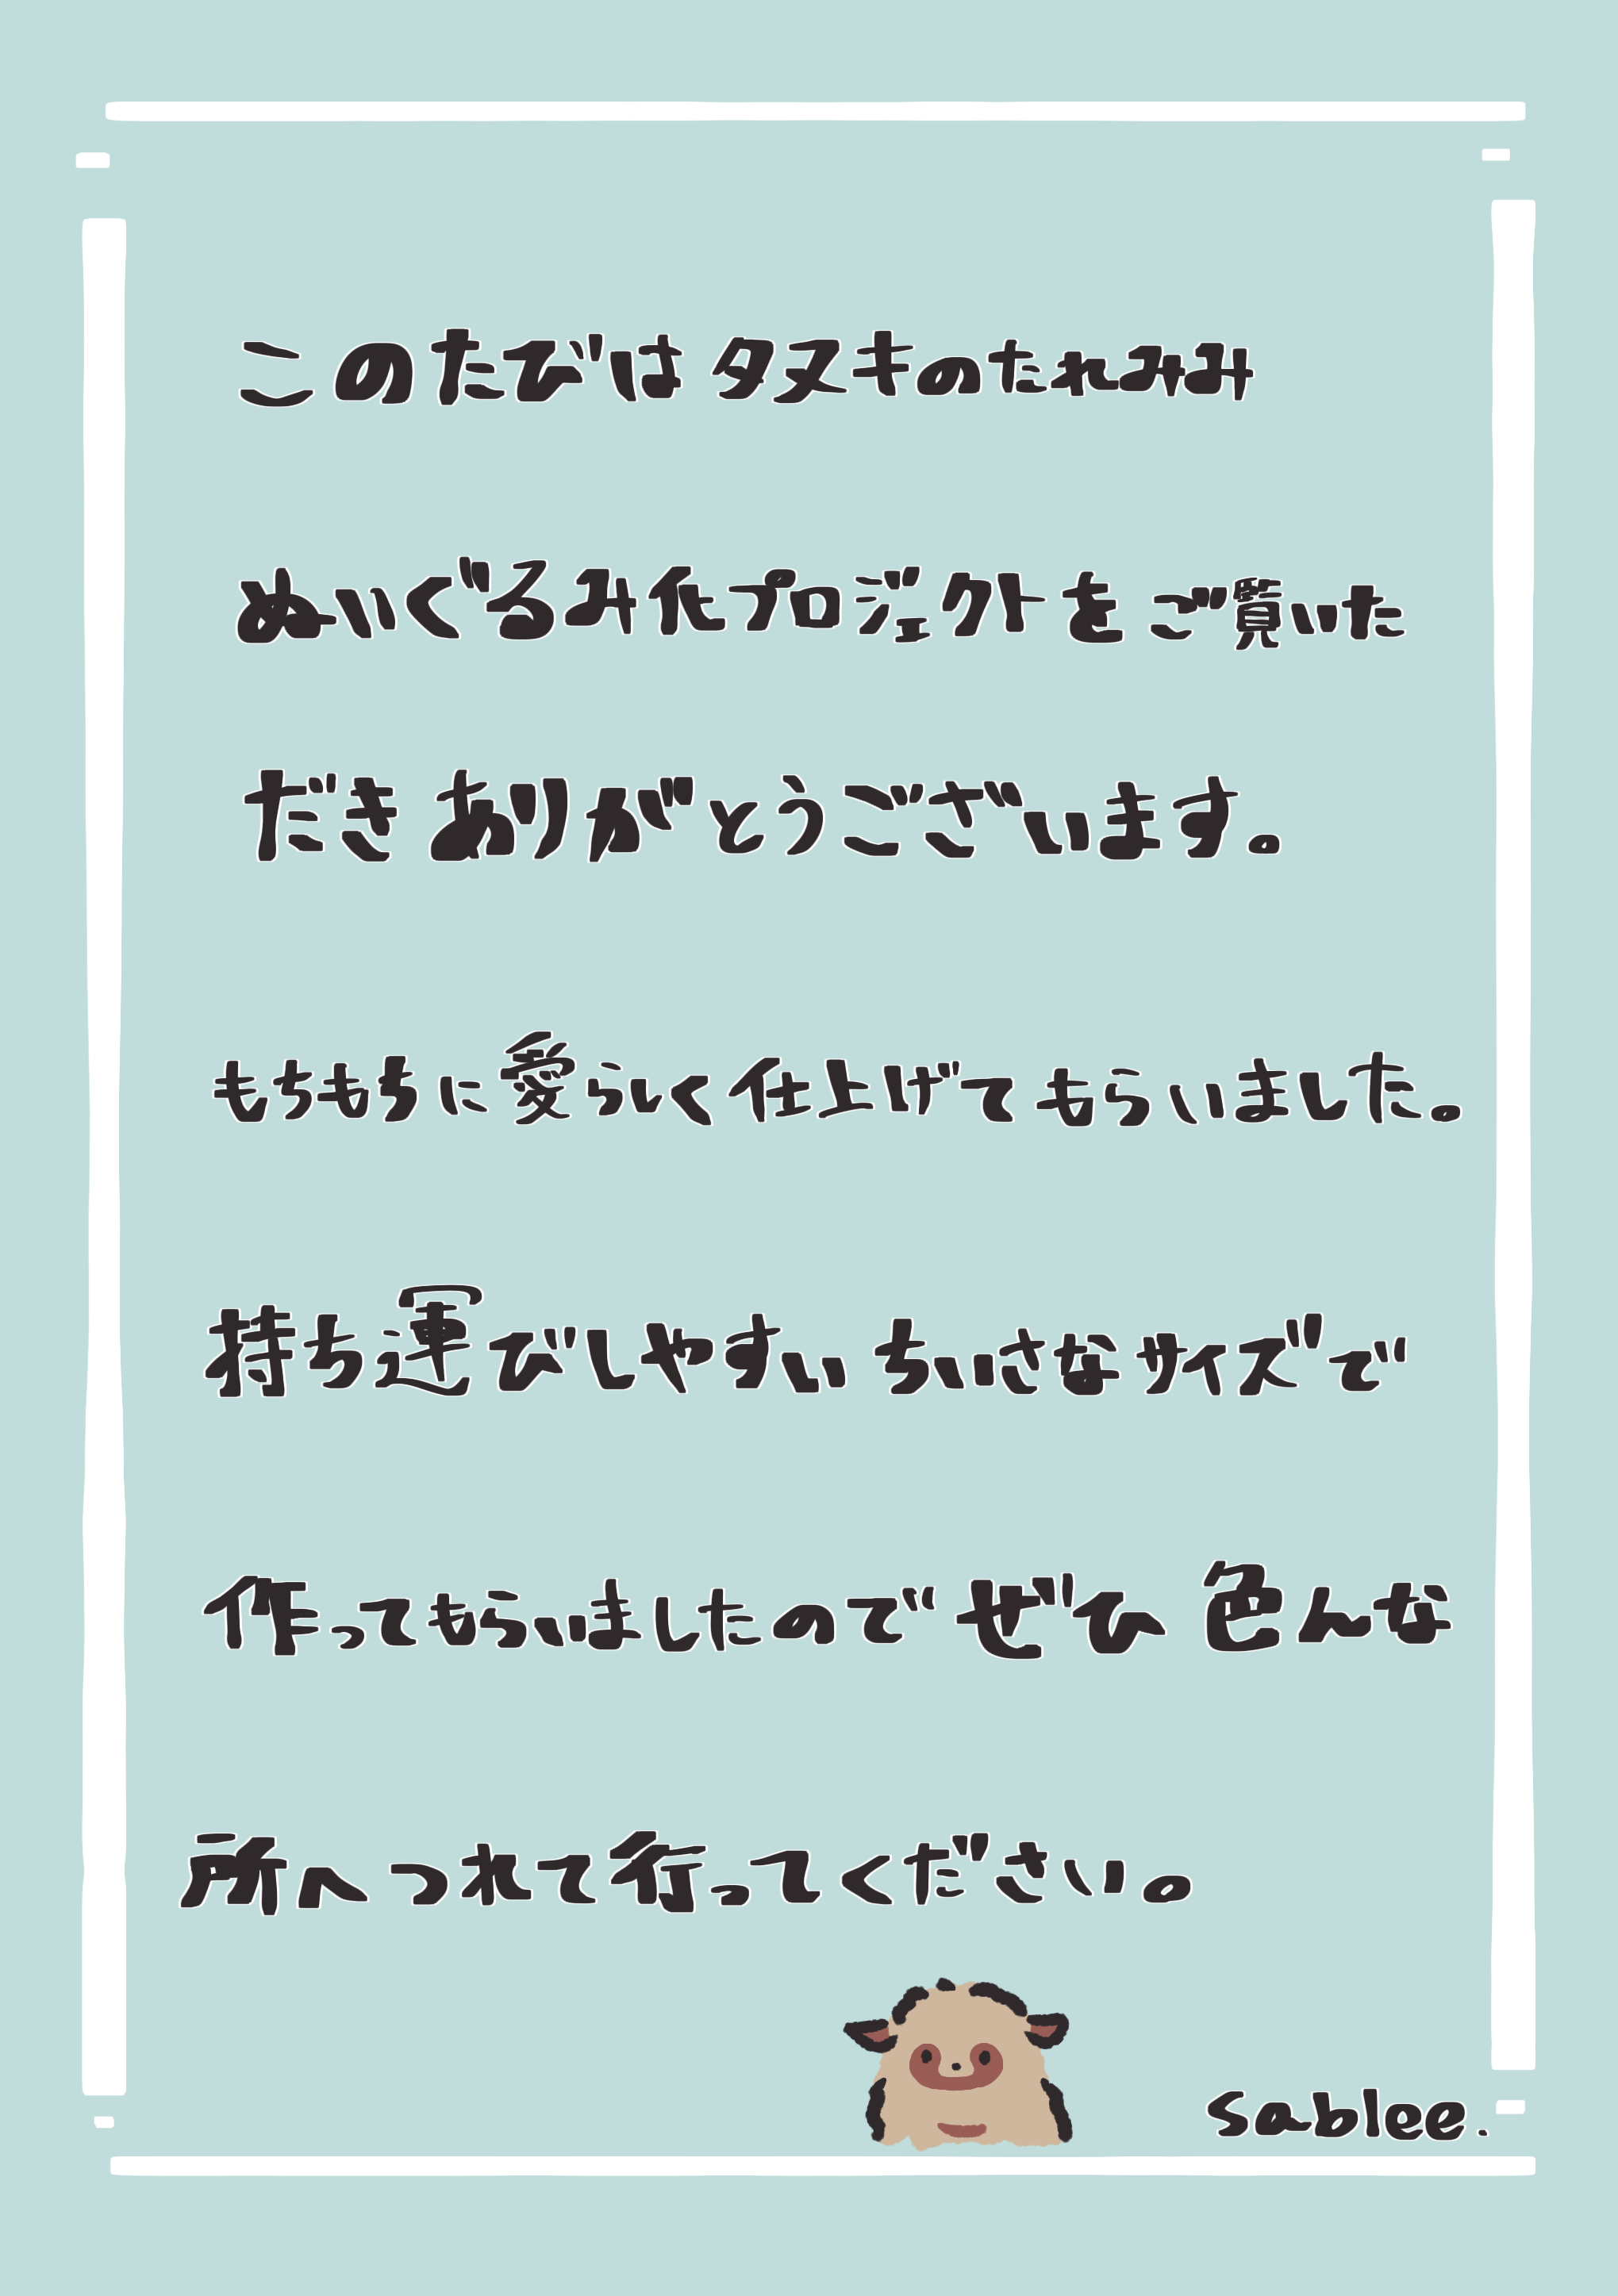 このたびはタヌキのたれみみ
ぬいぐるみ化プロジェクトをご覧いた
だきありがとうございます。
もちもちに愛らしく仕上げてもらいました。
持ち運びしやすいちいさなサイズで
作ってもらいましたのでぜひ色んな
所へつれて行ってください。
Sablee.